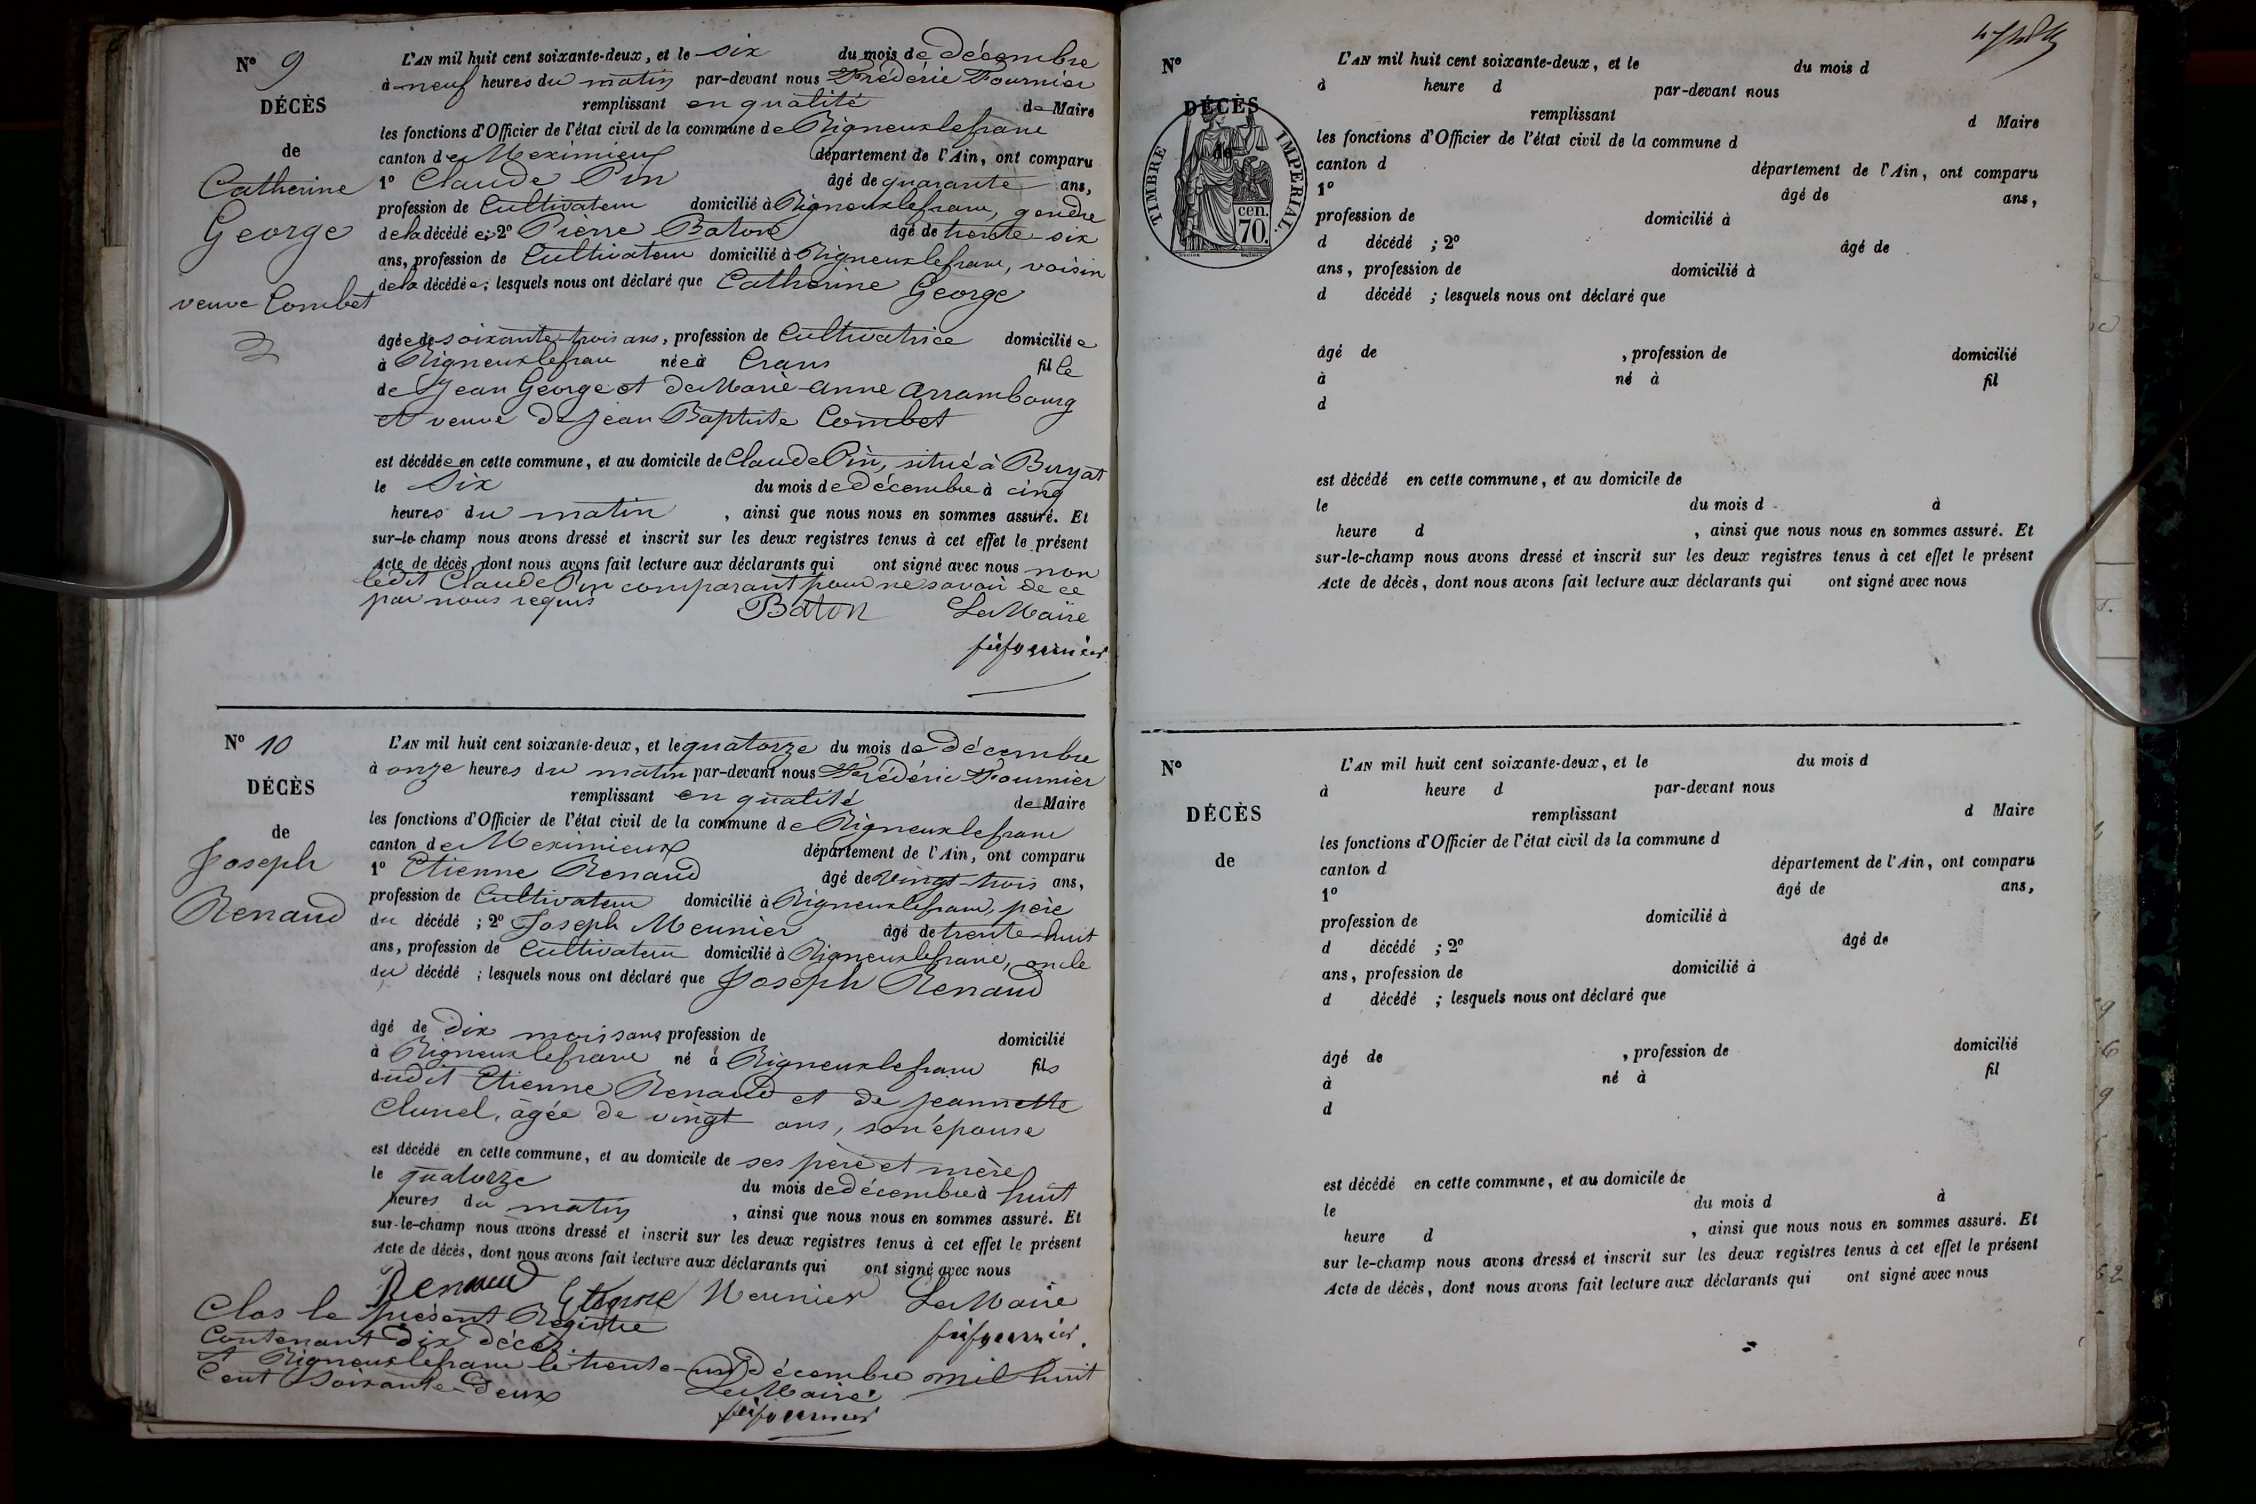 N° 9
DÉCÈS
de
Catherine
George
veuve Combet
L'AN mil huit cent soixante-deux, et le six du mois de décembre
à neuf heures du matin par-devant nous Frédéric Fournier
remplissant en qualité de Maire
les fonctions d'Officier de l'état civil de la commune de Rigneuxlefranc
canton de Meximieux département de l'Ain, ont comparu
1° Claude Pin âgé de quarante ans,
profession de Cultivateur domicilié à Rigneuxlefranc, gendre
de la décédée; 2° Pierre Baton âgé de trente-six
ans, profession de Cultivateur domicilié à Rigneuxlefranc, voisin
de la décédée; lesquels nous ont déclaré que Catherine George
âgée de soixante-trois ans, profession de Cultivatrice domiciliée
à Rigneuxlefranc née à Crans fille
de Jean George et de Marie-Anne Arrambourg
et veuve de Jean Baptiste Combet
est décédée en cette commune, et au domicile de Claude Pin, situé à Buryat
le Six du mois de décembre à cinq
heures du matin, ainsi que nous nous en sommes assuré. Et
sur-le-champ nous avons dressé et inscrit sur les deux registres tenus à cet effet le présent
Acte de décès, dont nous avons fait lecture aux déclarants qui ont signé avec nous non
ledit Claude Pin comparant pour ne savoir de ce
par nous requis Baton Le Maire
fr fournier
N° 10
DÉCÈS
de
Joseph
Renaud
L'AN mil huit cent soixante-deux, et le quatorze du mois de décembre
à onze heures du matin par-devant nous Frédéric Fournier
remplissant en qualité de Maire
les fonctions d'Officier de l'état civil de la commune de Rigneuxlefranc
canton de Meximieux département de l'Ain, ont comparu
1° Etienne Renaud âgé de vingt-trois ans,
profession de Cultivateur domicilié à Rigneuxlefranc, père
du décédé; 2° Joseph Meunier âgé de trente-huit
ans, profession de Cultivateur domicilié à Rigneuxlefranc, oncle
du décédé; lesquels nous ont déclaré que Joseph Renaud
âgé de dix mois sans profession de domicilié
à Rigneuxlefranc né à Rigneuxlefranc fils
dudit Etienne Renaud et de Jeannette
Clunel, âgée de vingt ans, son épouse
est décédé en cette commune, et au domicile de ses père et mère
le quatorze du mois de décembre à huit
heures du matin, ainsi que nous nous en sommes assuré. Et
sur-le-champ nous avons dressé et inscrit sur les deux registres tenus à cet effet le présent
Acte de décès, dont nous avons fait lecture aux déclarants qui ont signé avec nous
Renaud Etienne Meunier Le Maire
fr fournier
Clos le présent Registre
Contenant dix décès
A Rigneuxlefranc le trente-un décembre mil huit
Cent Soixante-deux Le Maire
fr fournier
N°
DÉCÈS
de
TIMBRE IMPÉRIAL.
70. cen.
L'AN mil huit cent soixante-deux, et le du mois d
à heure d par-devant nous
remplissant d Maire
les fonctions d'Officier de l'état civil de la commune d
canton d département de l'Ain, ont comparu
1° âgé de ans,
profession de domicilié à
d décédé ; 2° âgé de
ans, profession de domicilié à
d décédé ; lesquels nous ont déclaré que
âgé de , profession de domicilié
à né à fil
d
est décédé en cette commune, et au domicile de
le du mois d à
heure d , ainsi que nous nous en sommes assuré. Et
sur-le-champ nous avons dressé et inscrit sur les deux registres tenus à cet effet le présent
Acte de décès, dont nous avons fait lecture aux déclarants qui ont signé avec nous
N°
DÉCÈS
de
L'AN mil huit cent soixante-deux, et le du mois d
à heure d par-devant nous
remplissant d Maire
les fonctions d'Officier de l'état civil de la commune d
canton d département de l'Ain, ont comparu
1° âgé de ans,
profession de domicilié à
d décédé ; 2° âgé de
ans, profession de domicilié à
d décédé ; lesquels nous ont déclaré que
âgé de , profession de domicilié
à né à fil
d
est décédé en cette commune, et au domicile de
le du mois d à
heure d , ainsi que nous nous en sommes assuré. Et
sur le-champ nous avons dressé et inscrit sur les deux registres tenus à cet effet le présent
Acte de décès, dont nous avons fait lecture aux déclarants qui ont signé avec nous